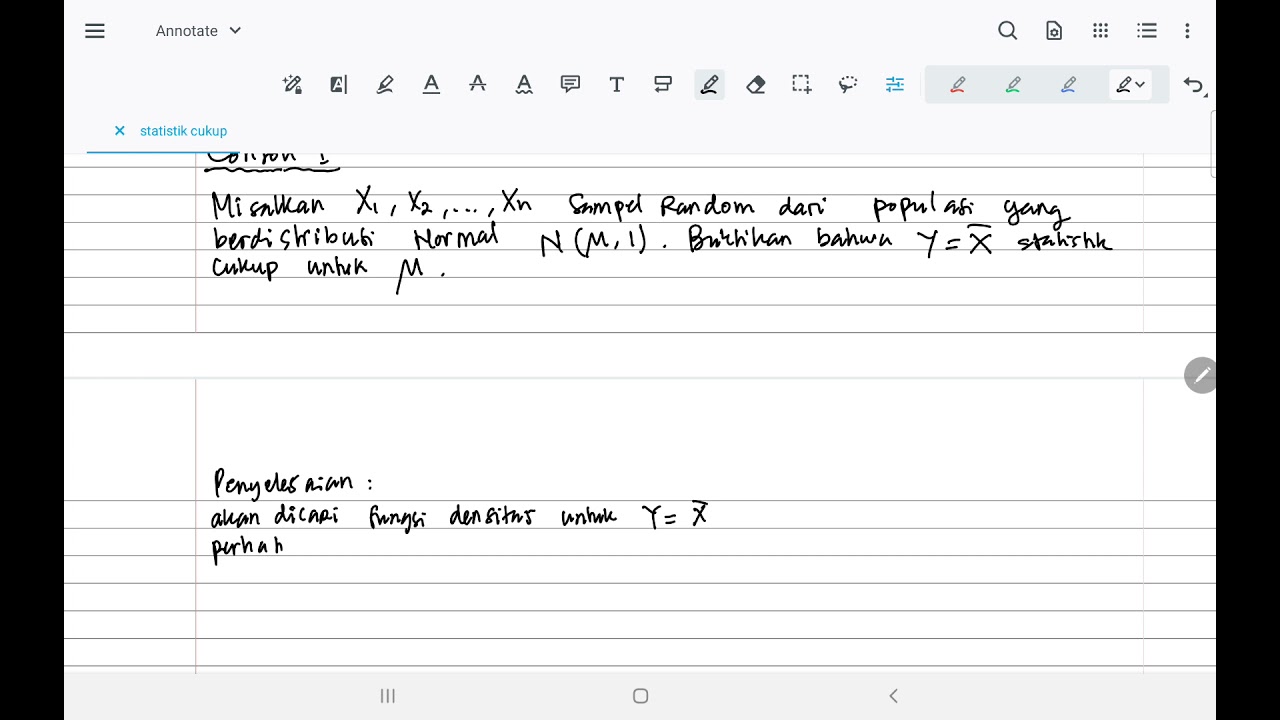 Annotate
statistik cukup
Contoh 1
Misalkan X₁, X₂, ..., Xn Sampel Random dari populasi yang
berdistribusi Normal N(μ, 1). Buktikan bahwa Y = X̄ statistik
cukup untuk μ.
Penyelesaian :
akan dicari fungsi densitas untuk Y = X̄
perhati